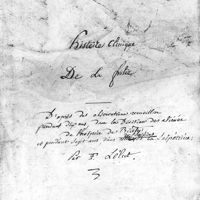 Histoire Clinique
De la folie
D'après des observations recueillies
pendant dix ans dans la Division des aliénés
de l'hospice de Bicêtre
et pendant sept ans dans la Salpêtrière,
Par F. Lélut.